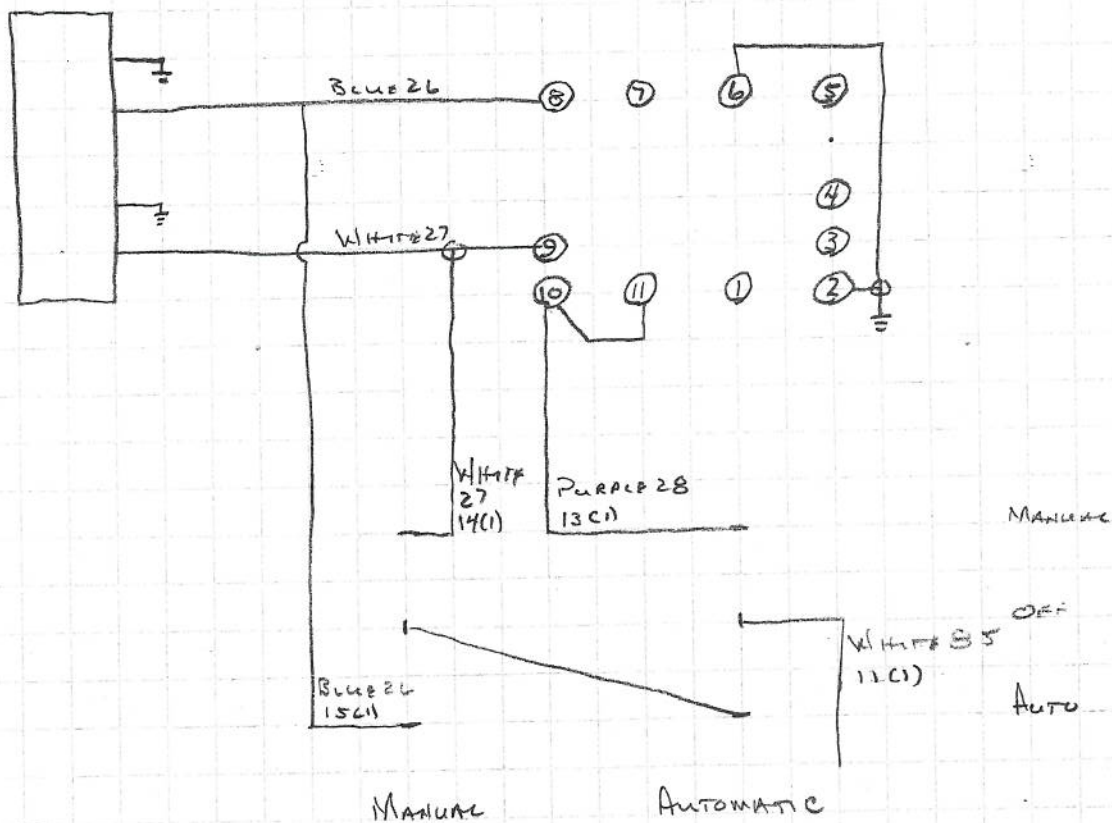 BLUE 26
8 7 6 5
4
WHITE 27
9
3
10 11 1 2
WHITE
27
14(1)
PURPLE 28
13(1)
MANUAL
OFF
WHITE 85
11(1)
BLUE 26
15(1)
AUTO
MANUAL AUTOMATIC